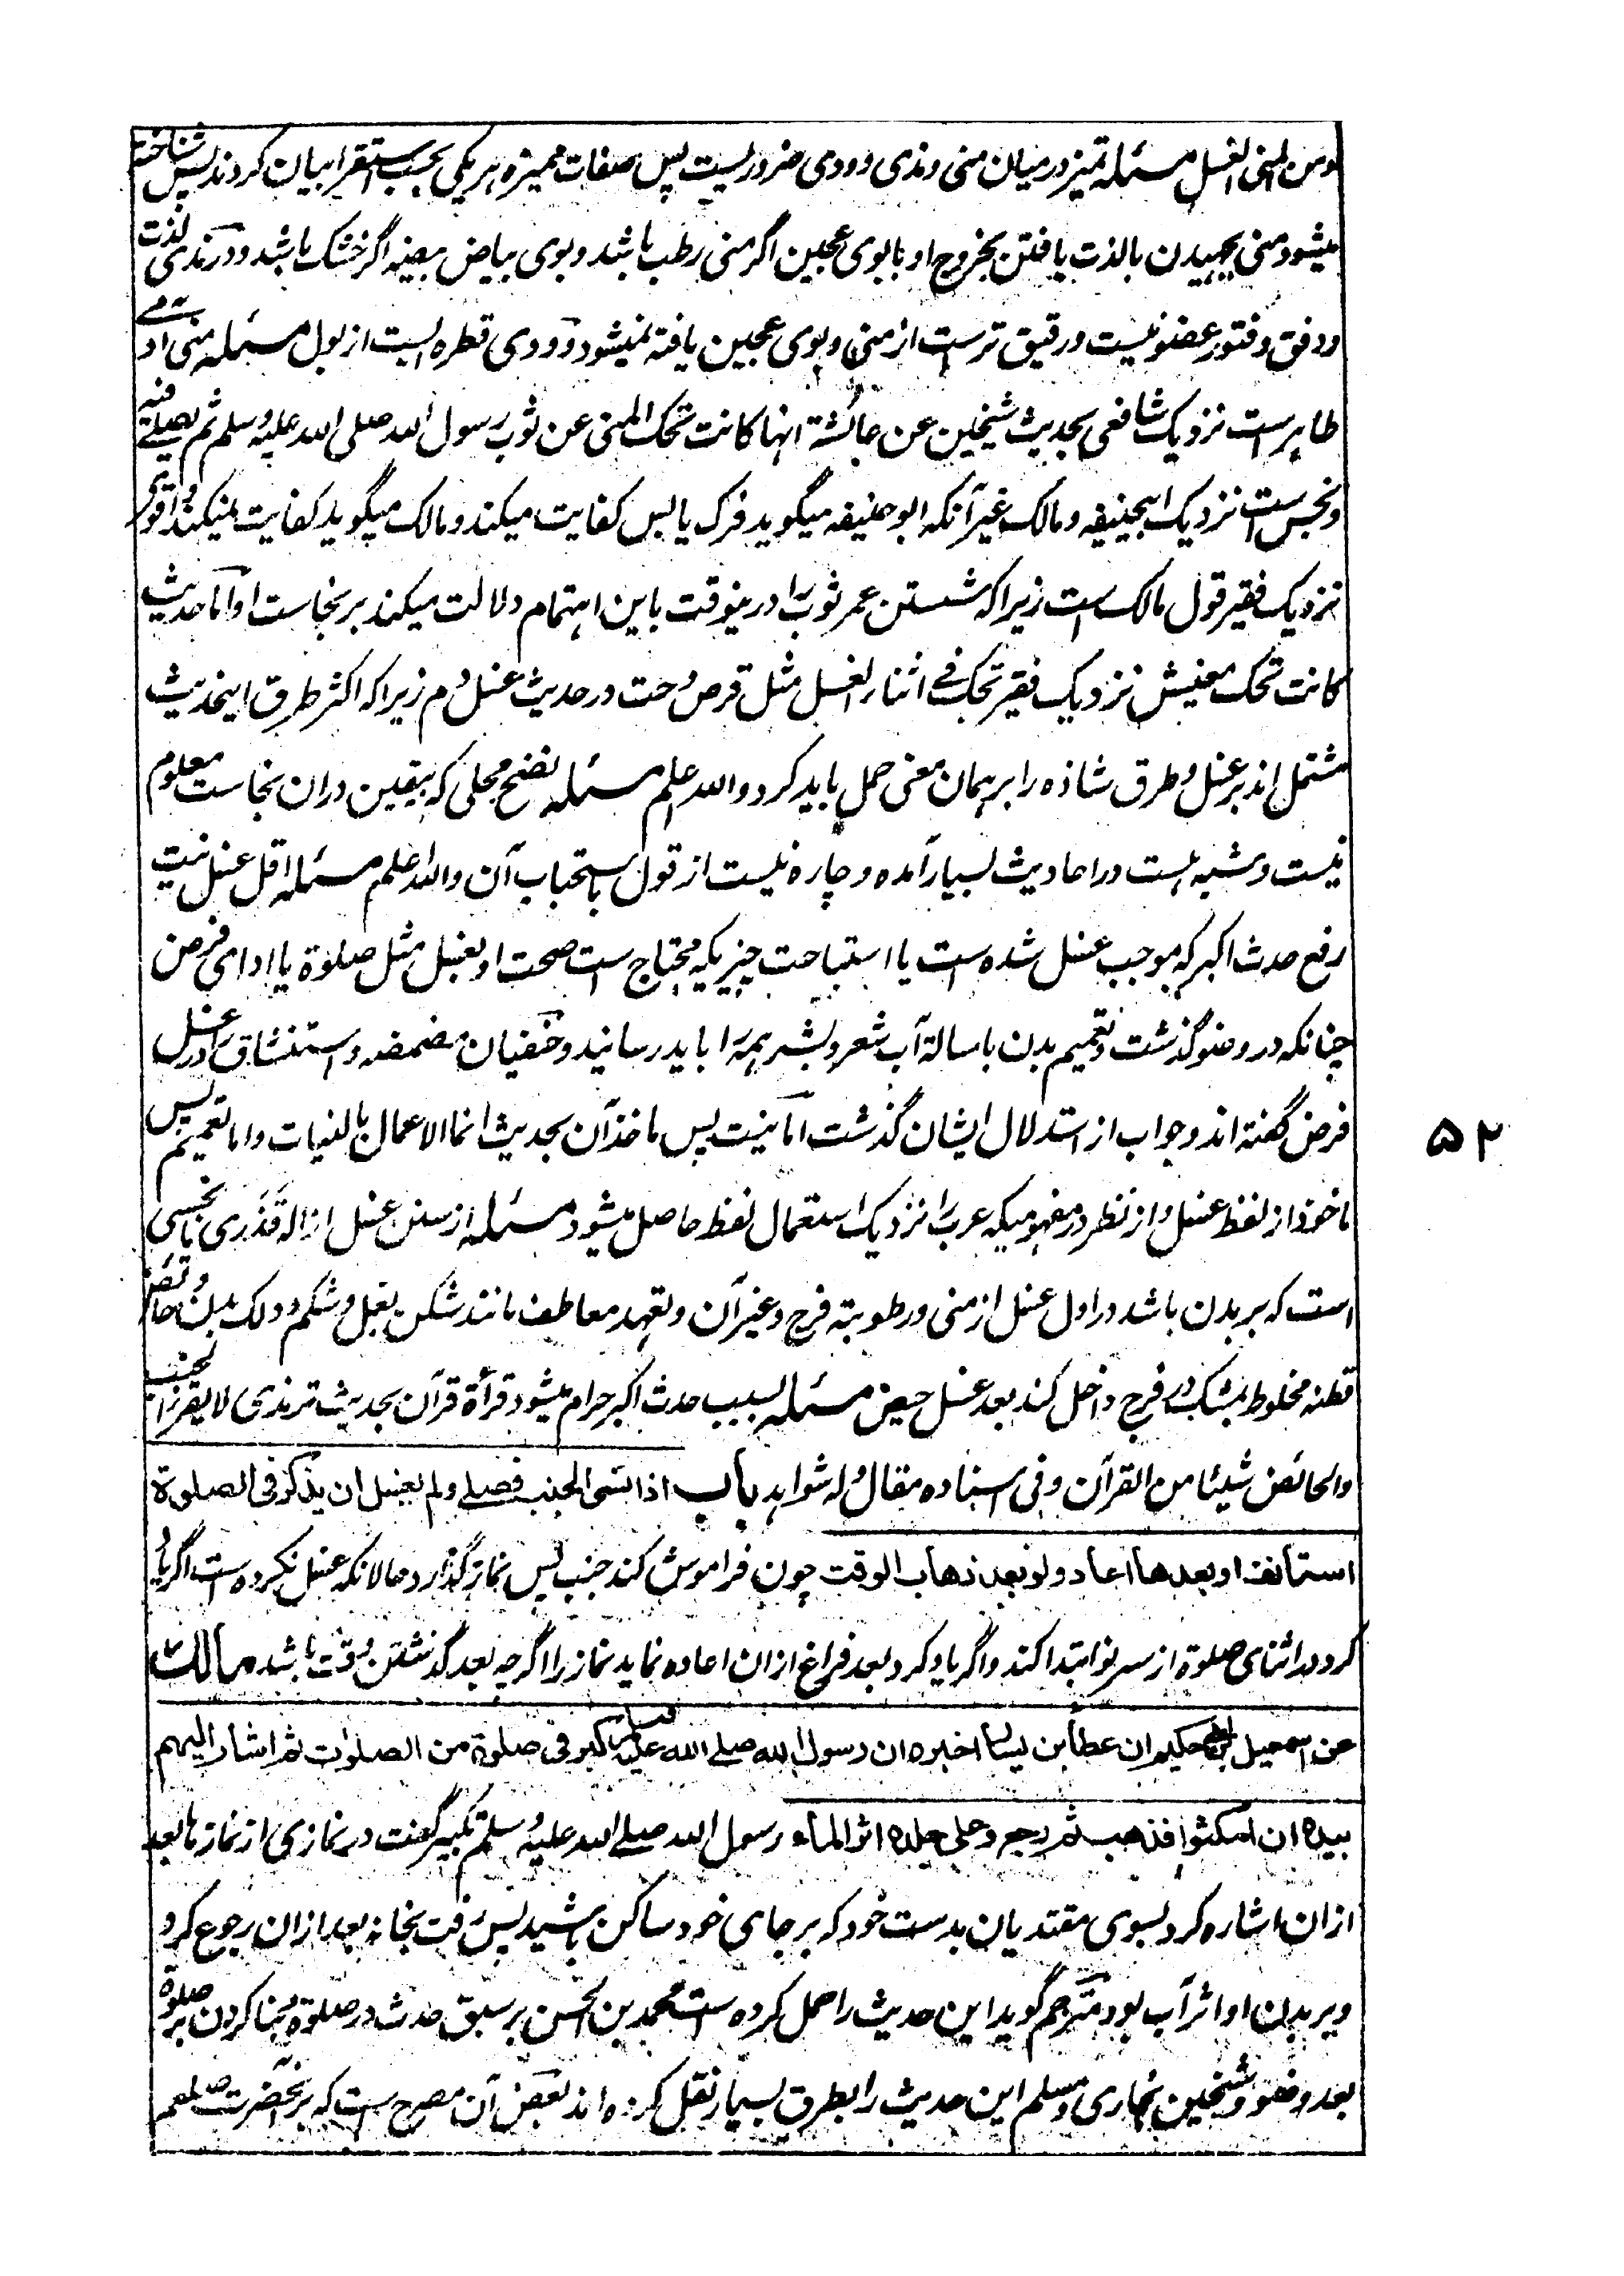 ومن المنی الغسل مسئله تمیز درمیان منی و مذی و ودی ضروریست پس صفات ممیزه هر یکی بحسب استقرا بیان کردند پس شناخته
میشود منی بجهیدن بالذت یافتن بخروج او یا بوی عجین اگر منی رطب باشد و بوی بیاض بیضه اگر خشک باشد و در مذی لذت
و دفق و فتور عضو نیست و رقیق ترست از منی و بوی عجین یافته نمیشود و ودی قطره ایست از بول مسئله منی آدمی
طاهرست نزدیک شافعی بحدیث شیخین عن عائشة انها کانت تحک المنی عن ثوب رسول الله صلی الله علیه وسلم ثم یصلی فیه
و نجس ست نزدیک ابیحنیفه و مالک غیر آنکه ابو حنیفه میگوید فرک یابس کفایت میکند و مالک میگوید کفایت نمیکند و اقوی
نزدیک فقیر قول مالک ست زیرا که شستن عمر ثوب را درینوقت باین اهتمام دلالت میکند بر نجاست او اما حدیث
کانت تحک معنیش نزدیک فقیر تحک فی اثناء الغسل مثل قرص و حت در حدیث غسل دم زیرا که اکثر طرق اینحدیث
مشتمل اند بر غسل و طرق شاذه را بر همان معنی حمل باید کرد والله اعلم مسئله نضح محلی که بیقین دران نجاست معلوم
نیست و شبه هست در احادیث بسیار آمده و چاره نیست از قول باستحباب آن والله اعلم مسئله اقل غسل نیت
رفع حدث اکبر که موجب غسل شده ست یا استباحت چیزیکه محتاج ست صحت او بغسل مثل صلوة یا ادای فرض
چنانکه در وضو گذشت و تعمیم بدن باسالة آب شعر و بشر همه را باید رسانید و حنفیان مضمضه و استنشاق را در غسل
فرض گفته اند و جواب از استدلال ایشان گذشت اما نیت پس ماخذ آن بحدیث انما الاعمال بالنیات و اما تعمیم پس
ماخوذ از لفظ غسل و از نظر در مفهومیکه عرب را نزدیک استعمال لفظ حاصل میشود مسئله از سنن غسل ازاله قذری یا نجسی
است که بر بدن باشد در اول غسل از منی و رطوبتة فرج و غیر آن و تعهد معاطف مانند شکن بغل و شکم و دلک بدن و حائض
قطنه مخلوط بمشک در فرج داخل کند بعد غسل حیض مسئله بسبب حدث اکبر حرام میشود قرأة قرآن بحدیث ترمذی لا یقرأ الجنب
والحائض شیئا من القرآن وفی اسناده مقال وله شواهد باب اذا نسی الجنب فصلی ولم یغتسل ان یذکر فی الصلوة
استأنف او بعدها اعاد ولو بعد ذهاب الوقت چون فراموش کند جنب پس نماز گذارد حالانکه غسل نکرده ست اگر یاد
کرد در اثنای صلوة از سر نو ابتدا کند و اگر یاد کرد بعد فراغ ازان اعاده نماید نماز را اگرچه بعد گذشتن وقت باشد مالک
عن اسمعیل بن ابی حکیم ان عطأ بن یسار اخبره ان رسول الله صلے الله علیه وسلم کبر فی صلوة من الصلوات ثم اشار الیهم
بیده ان امکثوا فذهب ثم رجع وعلی جلده اثر الماء رسول الله صلے الله علیه وسلم تکبیر گفت در نمازی از نمازها بعد
ازان اشاره کرد بسوی مقتدیان بدست خود که بر جای خود ساکن باشید پس رفت بخانه بعد ازان رجوع کرد
و بر بدن او اثر آب بود مترجم گوید این حدیث را حمل کرده ست محمد بن الحسن بر سبق حدث در صلوة و بنا کردن بر صلوة
بعد وضو و شیخین بخاری و مسلم این حدیث را بطرق بسیار نقل کرده اند بعض آن مصرح ست که بر آنحضرت صلعم
۵۲